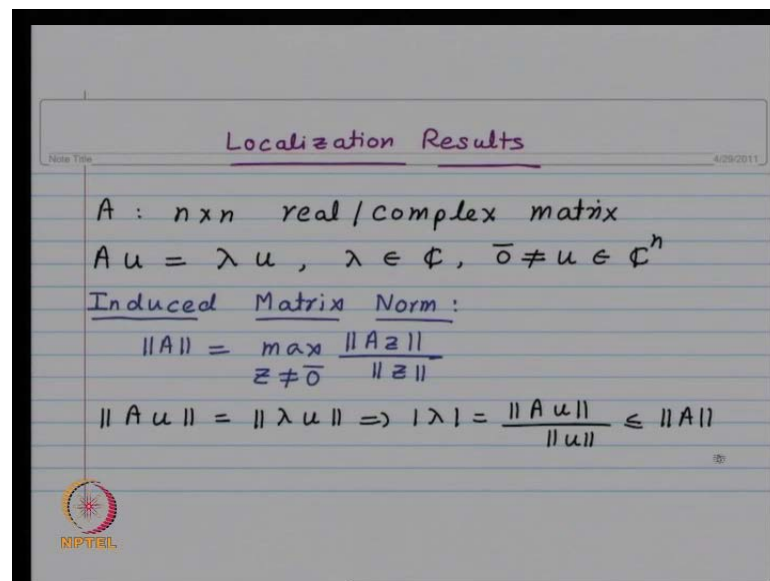 Localization Results
Note Title
4/29/2011
A : n×n real / complex matrix
A u = λ u , λ ∈ ℂ, 0̄ ≠ u ∈ ℂⁿ
Induced Matrix Norm :
||A|| = max_{z ≠ 0̄} ||A z|| / ||z||
|| A u || = || λ u || => |λ| = ||A u|| / ||u|| ≤ ||A||
NPTEL